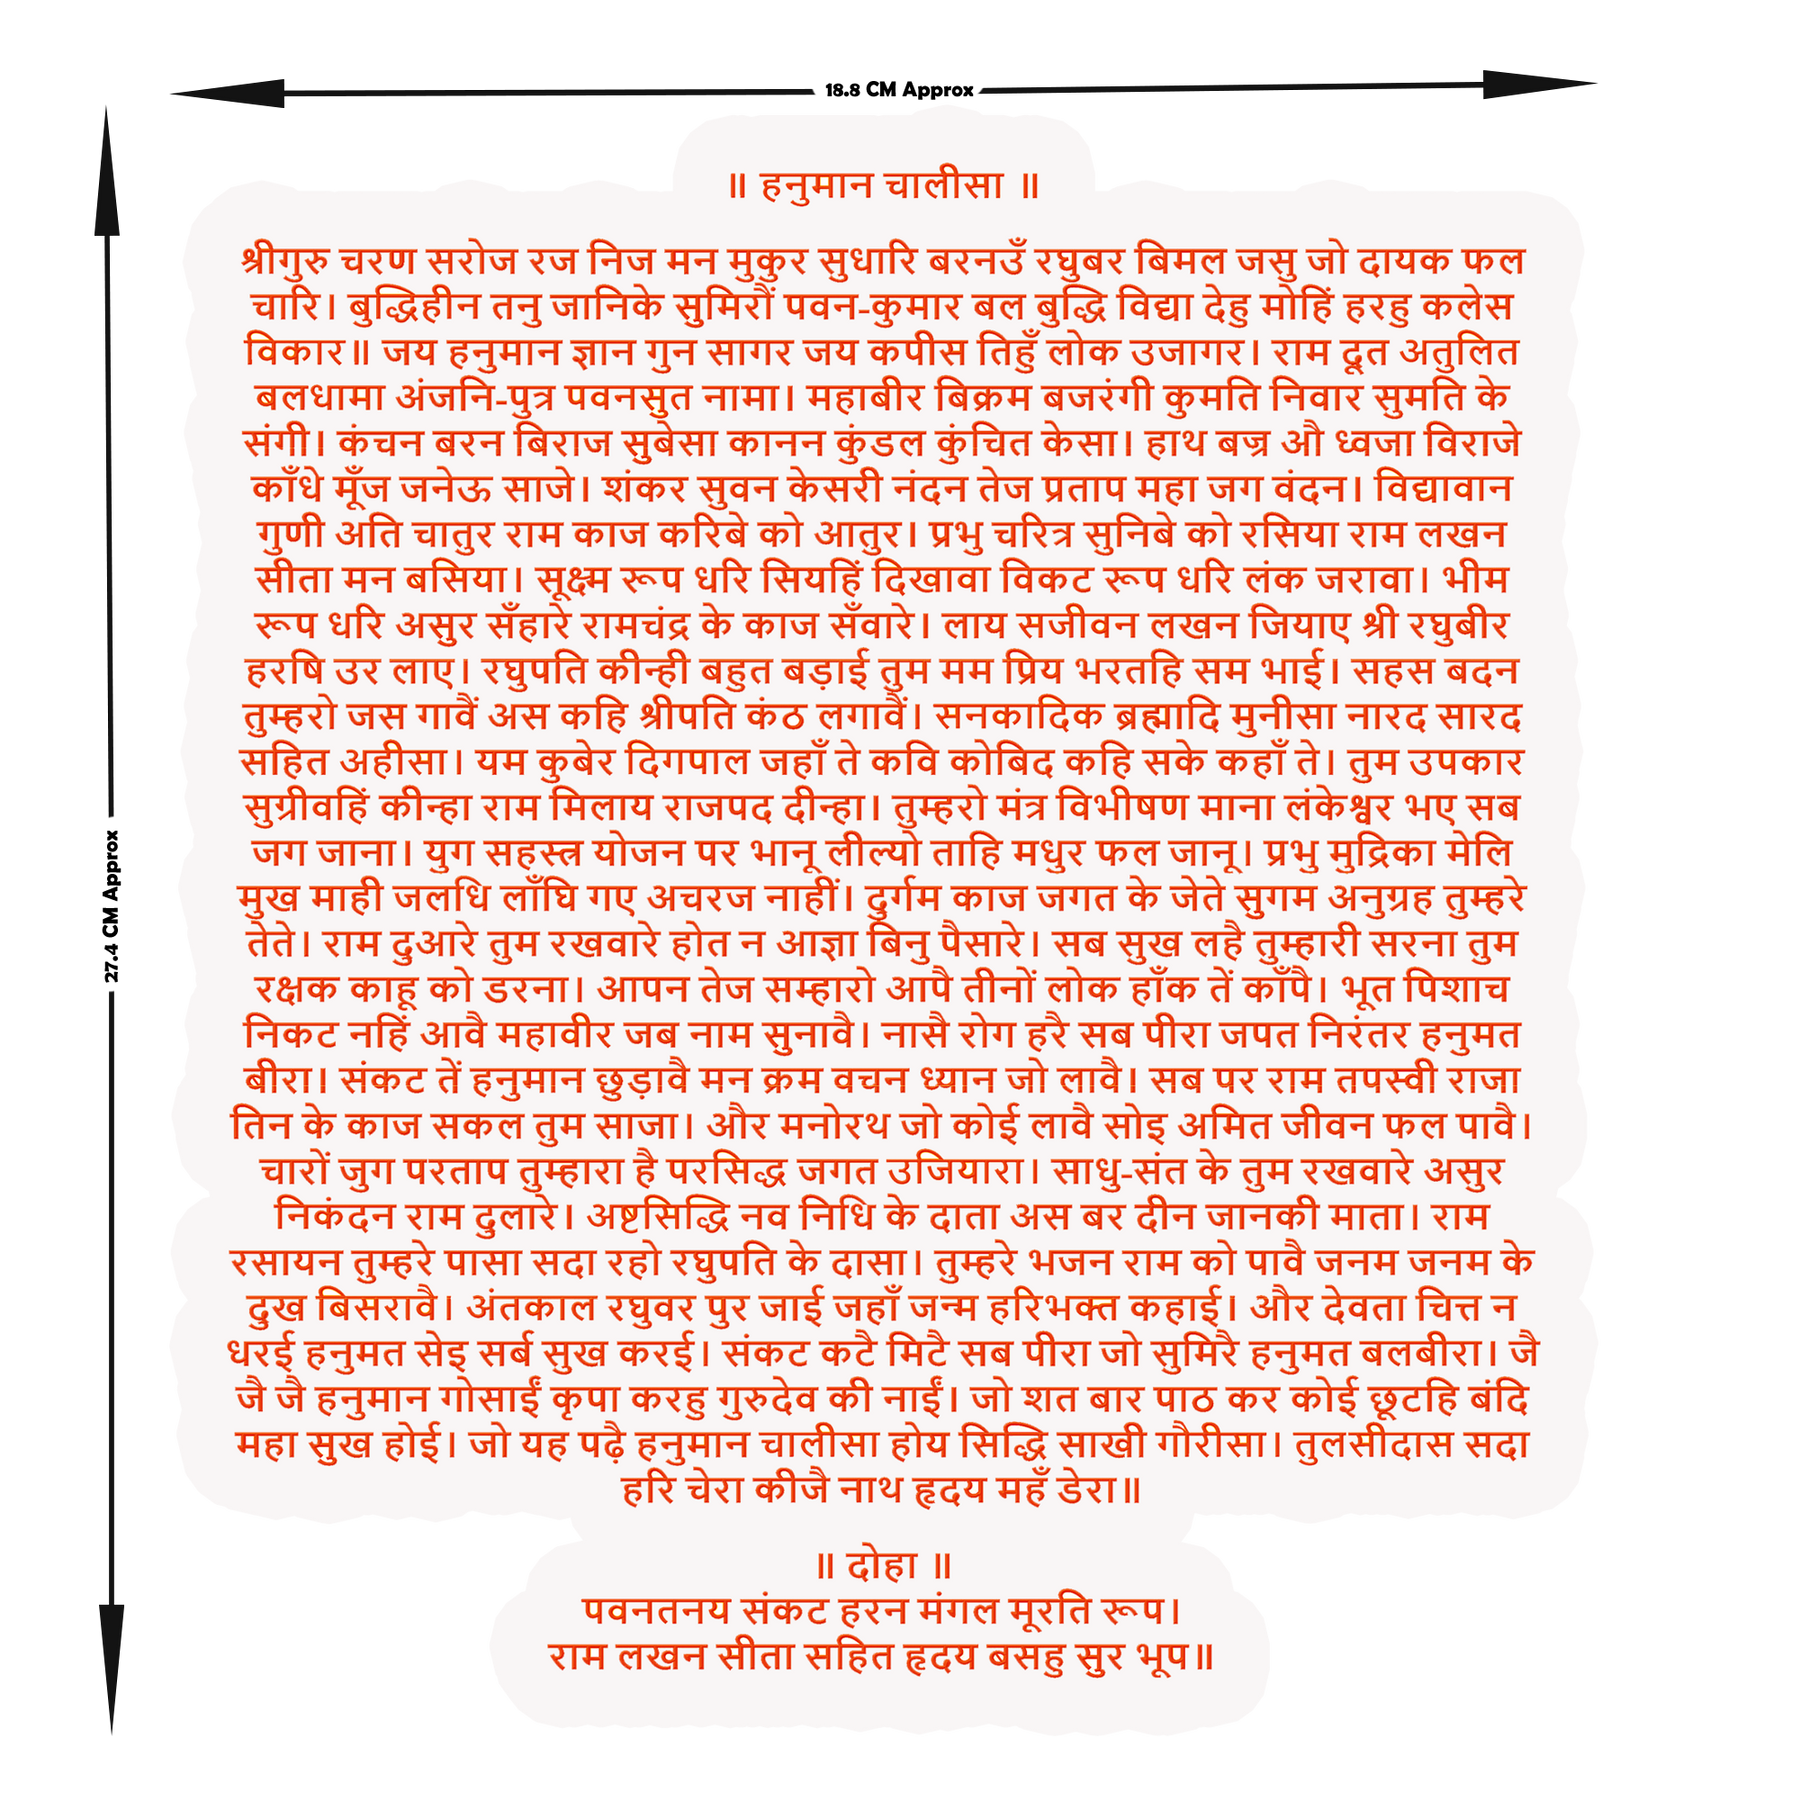 18.8 CM Approx
27.4 CM Approx
॥ हनुमान चालीसा ॥
श्रीगुरु चरण सरोज रज निज मन मुकुर सुधारि बरनउँ रघुबर बिमल जसु जो दायक फल
चारि। बुद्धिहीन तनु जानिके सुमिरौं पवन-कुमार बल बुद्धि विद्या देहु मोहिं हरहु कलेस
विकार॥ जय हनुमान ज्ञान गुन सागर जय कपीस तिहुँ लोक उजागर। राम दूत अतुलित
बलधामा अंजनि-पुत्र पवनसुत नामा। महाबीर बिक्रम बजरंगी कुमति निवार सुमति के
संगी। कंचन बरन बिराज सुबेसा कानन कुंडल कुंचित केसा। हाथ बज्र औ ध्वजा विराजे
काँधे मूँज जनेऊ साजे। शंकर सुवन केसरी नंदन तेज प्रताप महा जग वंदन। विद्यावान
गुणी अति चातुर राम काज करिबे को आतुर। प्रभु चरित्र सुनिबे को रसिया राम लखन
सीता मन बसिया। सूक्ष्म रूप धरि सियहिं दिखावा विकट रूप धरि लंक जरावा। भीम
रूप धरि असुर सँहारे रामचंद्र के काज सँवारे। लाय सजीवन लखन जियाए श्री रघुबीर
हरषि उर लाए। रघुपति कीन्ही बहुत बड़ाई तुम मम प्रिय भरतहि सम भाई। सहस बदन
तुम्हरो जस गावैं अस कहि श्रीपति कंठ लगावैं। सनकादिक ब्रह्मादि मुनीसा नारद सारद
सहित अहीसा। यम कुबेर दिगपाल जहाँ ते कवि कोबिद कहि सके कहाँ ते। तुम उपकार
सुग्रीवहिं कीन्हा राम मिलाय राजपद दीन्हा। तुम्हरो मंत्र विभीषण माना लंकेश्वर भए सब
जग जाना। युग सहस्त्र योजन पर भानू लील्यो ताहि मधुर फल जानू। प्रभु मुद्रिका मेलि
मुख माही जलधि लाँघि गए अचरज नाहीं। दुर्गम काज जगत के जेते सुगम अनुग्रह तुम्हरे
तेते। राम दुआरे तुम रखवारे होत न आज्ञा बिनु पैसारे। सब सुख लहै तुम्हारी सरना तुम
रक्षक काहू को डरना। आपन तेज सम्हारो आपै तीनों लोक हाँक तें काँपै। भूत पिशाच
निकट नहिं आवै महावीर जब नाम सुनावै। नासै रोग हरै सब पीरा जपत निरंतर हनुमत
बीरा। संकट तें हनुमान छुड़ावै मन क्रम वचन ध्यान जो लावै। सब पर राम तपस्वी राजा
तिन के काज सकल तुम साजा। और मनोरथ जो कोई लावै सोइ अमित जीवन फल पावै।
चारों जुग परताप तुम्हारा है परसिद्ध जगत उजियारा। साधु-संत के तुम रखवारे असुर
निकंदन राम दुलारे। अष्टसिद्धि नव निधि के दाता अस बर दीन जानकी माता। राम
रसायन तुम्हरे पासा सदा रहो रघुपति के दासा। तुम्हरे भजन राम को पावै जनम जनम के
दुख बिसरावै। अंतकाल रघुवर पुर जाई जहाँ जन्म हरिभक्त कहाई। और देवता चित्त न
धरई हनुमत सेइ सर्ब सुख करई। संकट कटै मिटै सब पीरा जो सुमिरै हनुमत बलबीरा। जै
जै जै हनुमान गोसाईं कृपा करहु गुरुदेव की नाईं। जो शत बार पाठ कर कोई छूटहि बंदि
महा सुख होई। जो यह पढ़ै हनुमान चालीसा होय सिद्धि साखी गौरीसा। तुलसीदास सदा
हरि चेरा कीजै नाथ हृदय महँ डेरा॥
॥ दोहा ॥
पवनतनय संकट हरन मंगल मूरति रूप।
राम लखन सीता सहित हृदय बसहु सुर भूप॥